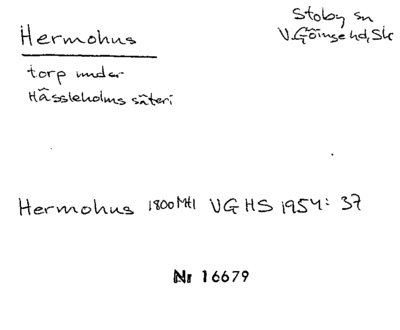 Hermohus
Stoby sn
V. Göinge hd, Sk
torp under
Hässleholms säteri
Hermohus 1800Mtl VGHS 1954: 37
Nr 16679